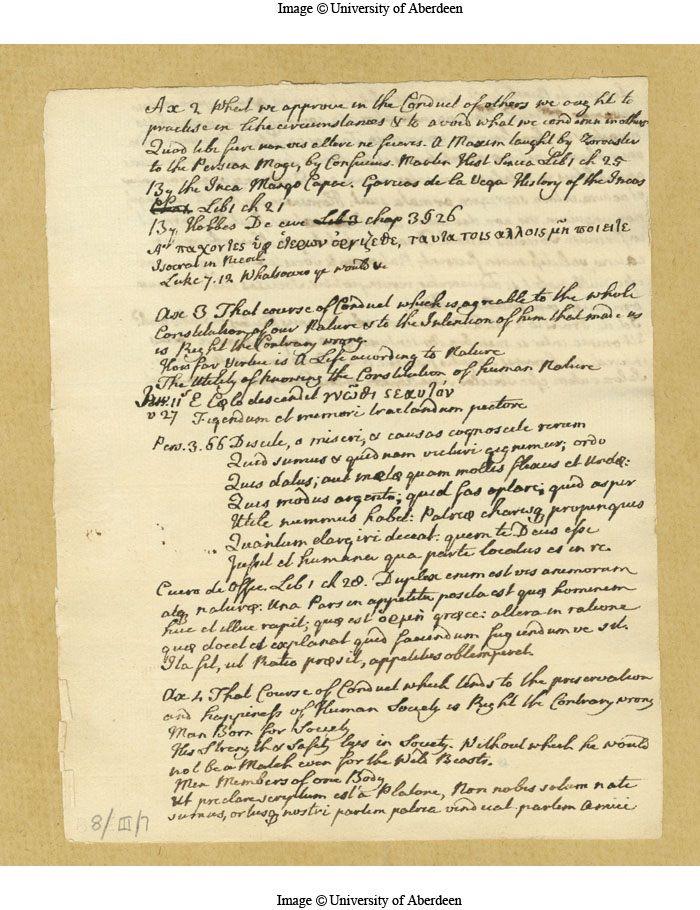 Image © University of Aberdeen
Ax 2 What we approve in the Conduct of others we ought to
practise in like circumstances & to avoid what we condemn in others
Quod tibi fieri non vis altere ne feceres. A Maxim taught by Zoroaster
to the Persian Magi, by Confucius. Martin Hist Sinica Lib 1 ch 25
By the Inca Mango Capac. Garcias de la Vega History of the Incas
Lib 1 ch 21
By Hobbes De cive Lib 3 chap 3 § 26
πασχοντες ὑφ ετερων οργιζεθε, ταυτα τοις αλλοις μη ποιειτε
Isocrat in Nicocl
Luke 7.12 Whatsoever ye would &
Axe 3 That course of Conduct which is agreable to the whole
Constitution of our Nature & to the Intention of him that made us
is Right the Contrary wrong.
How far Virtue is A Life according to Nature
The Utility of knowing the Constitution of human Nature
Juv. 11 E Cœlo descendit γνῶθι σεαυτόν
v 27 Figendum et memori tractandum pectore
Pers. 3. 66 Discite, o miseri, & causas cognoscite rerum
Quid sumus & quidnam victuri gignimur; ordo
Quis datus; aut metæ quam mollis flexus et Undæ:
Quis modus argento; quid fas optare; quid asper
Utile nummus habet: Patriæ charisq propinquis
Quantum elargiri deceat: quem te Deus esse
Jussit et humana qua parte locatus es in re.
Cicero de Offic. Lib 1 ch 28. Duplex enim est vis animorum
atq naturæ. Una Pars in appetitu posita est quæ hominem
huc et illuc rapit; quæ est ὁρμὴ græce: altera in ratione
quæ docet et explanat quid faciendum fugiendum ve sit.
Ita fit, ut Ratio præsit, appetitus obtemperet.
Ax 4 That Course of Conduct which tends to the preservation
and happiness of Human Society is Right the Contrary wrong
Man Born for Society
His Strength & Safety lyes in Society. Without which he would
not be a Match even for the Wild Beasts.
Men Members of one Body
Ut preclare scriptum est a Platone, Non nobis solum nati
sumus, ortusq nostri partem patria vindicat partem amici
8/III/7
Image © University of Aberdeen